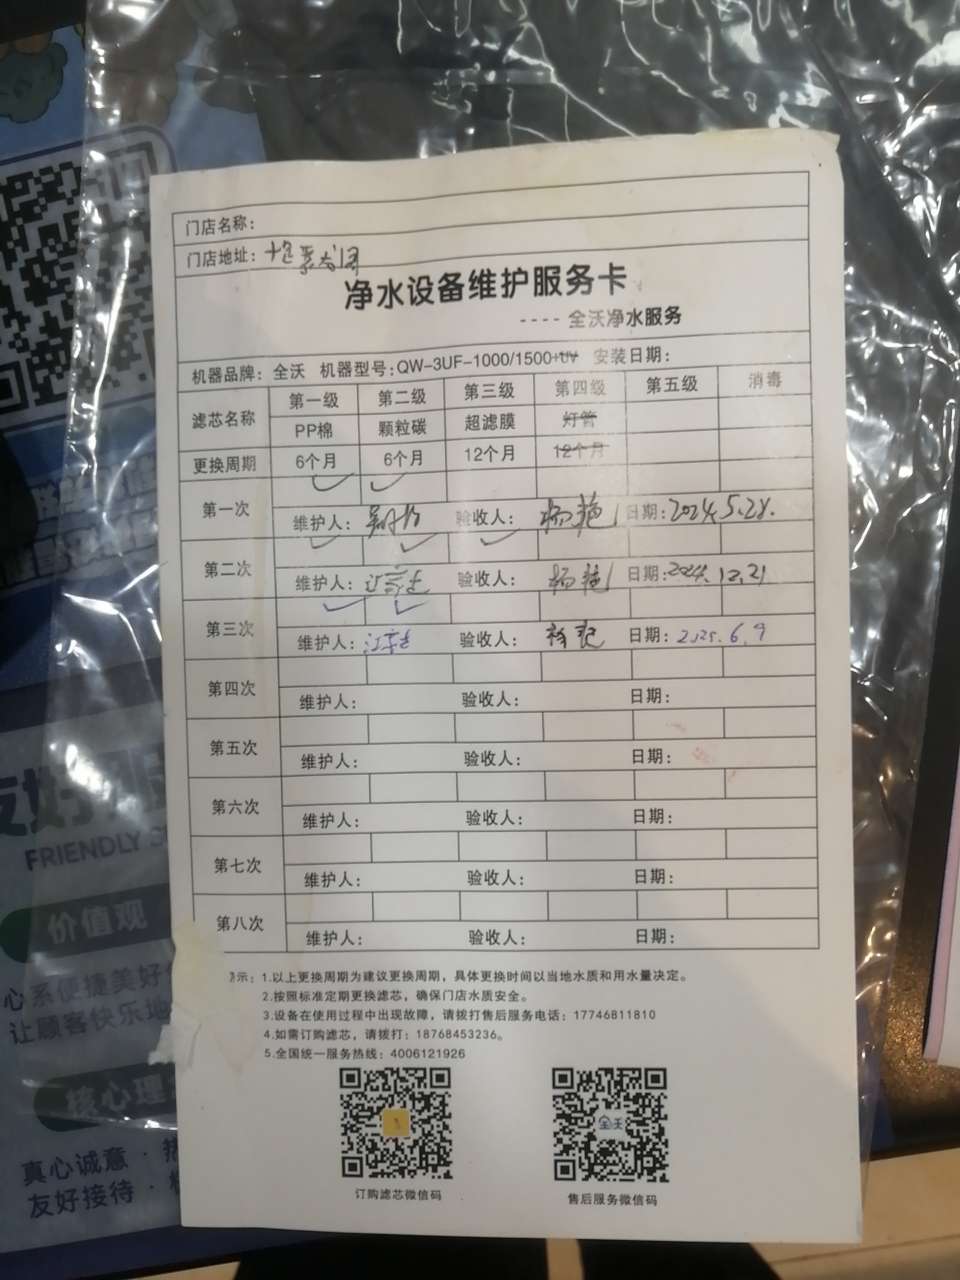 门店名称：
门店地址：
净水设备维护服务卡
---- 全沃净水服务
机器品牌：全沃 机器型号：QW-3UF-1000/1500+UV 安装日期：
滤芯名称 第一级 第二级 第三级 第四级 第五级 消毒
PP棉 颗粒碳 超滤膜 灯管
更换周期 6个月 6个月 12个月 12个月
第一次 ✓ ✓
维护人： 验收人：杨艳 日期：2024.5.28.
第二次 ✓ ✓ ✓
维护人： 验收人：杨艳 日期：2024.12.21
第三次 ✓ ✓
维护人： 验收人： 日期：2025.6.9
第四次
维护人： 验收人： 日期：
第五次
维护人： 验收人： 日期：
第六次
维护人： 验收人： 日期：
第七次
维护人： 验收人： 日期：
第八次
维护人： 验收人： 日期：
示：1.以上更换周期为建议更换周期，具体更换时间以当地水质和用水量决定。
2.按照标准定期更换滤芯，确保门店水质安全。
3.设备在使用过程中出现故障，请拨打售后服务电话：17746811810
4.如需订购滤芯，请拨打：18768453236。
5.全国统一服务热线：4006121926
全沃
订购滤芯微信码 售后服务微信码
友好
FRIENDLY
价值观
心系便捷美好
让顾客快乐地
核心理
真心诚意 · 热
友好接待 ·